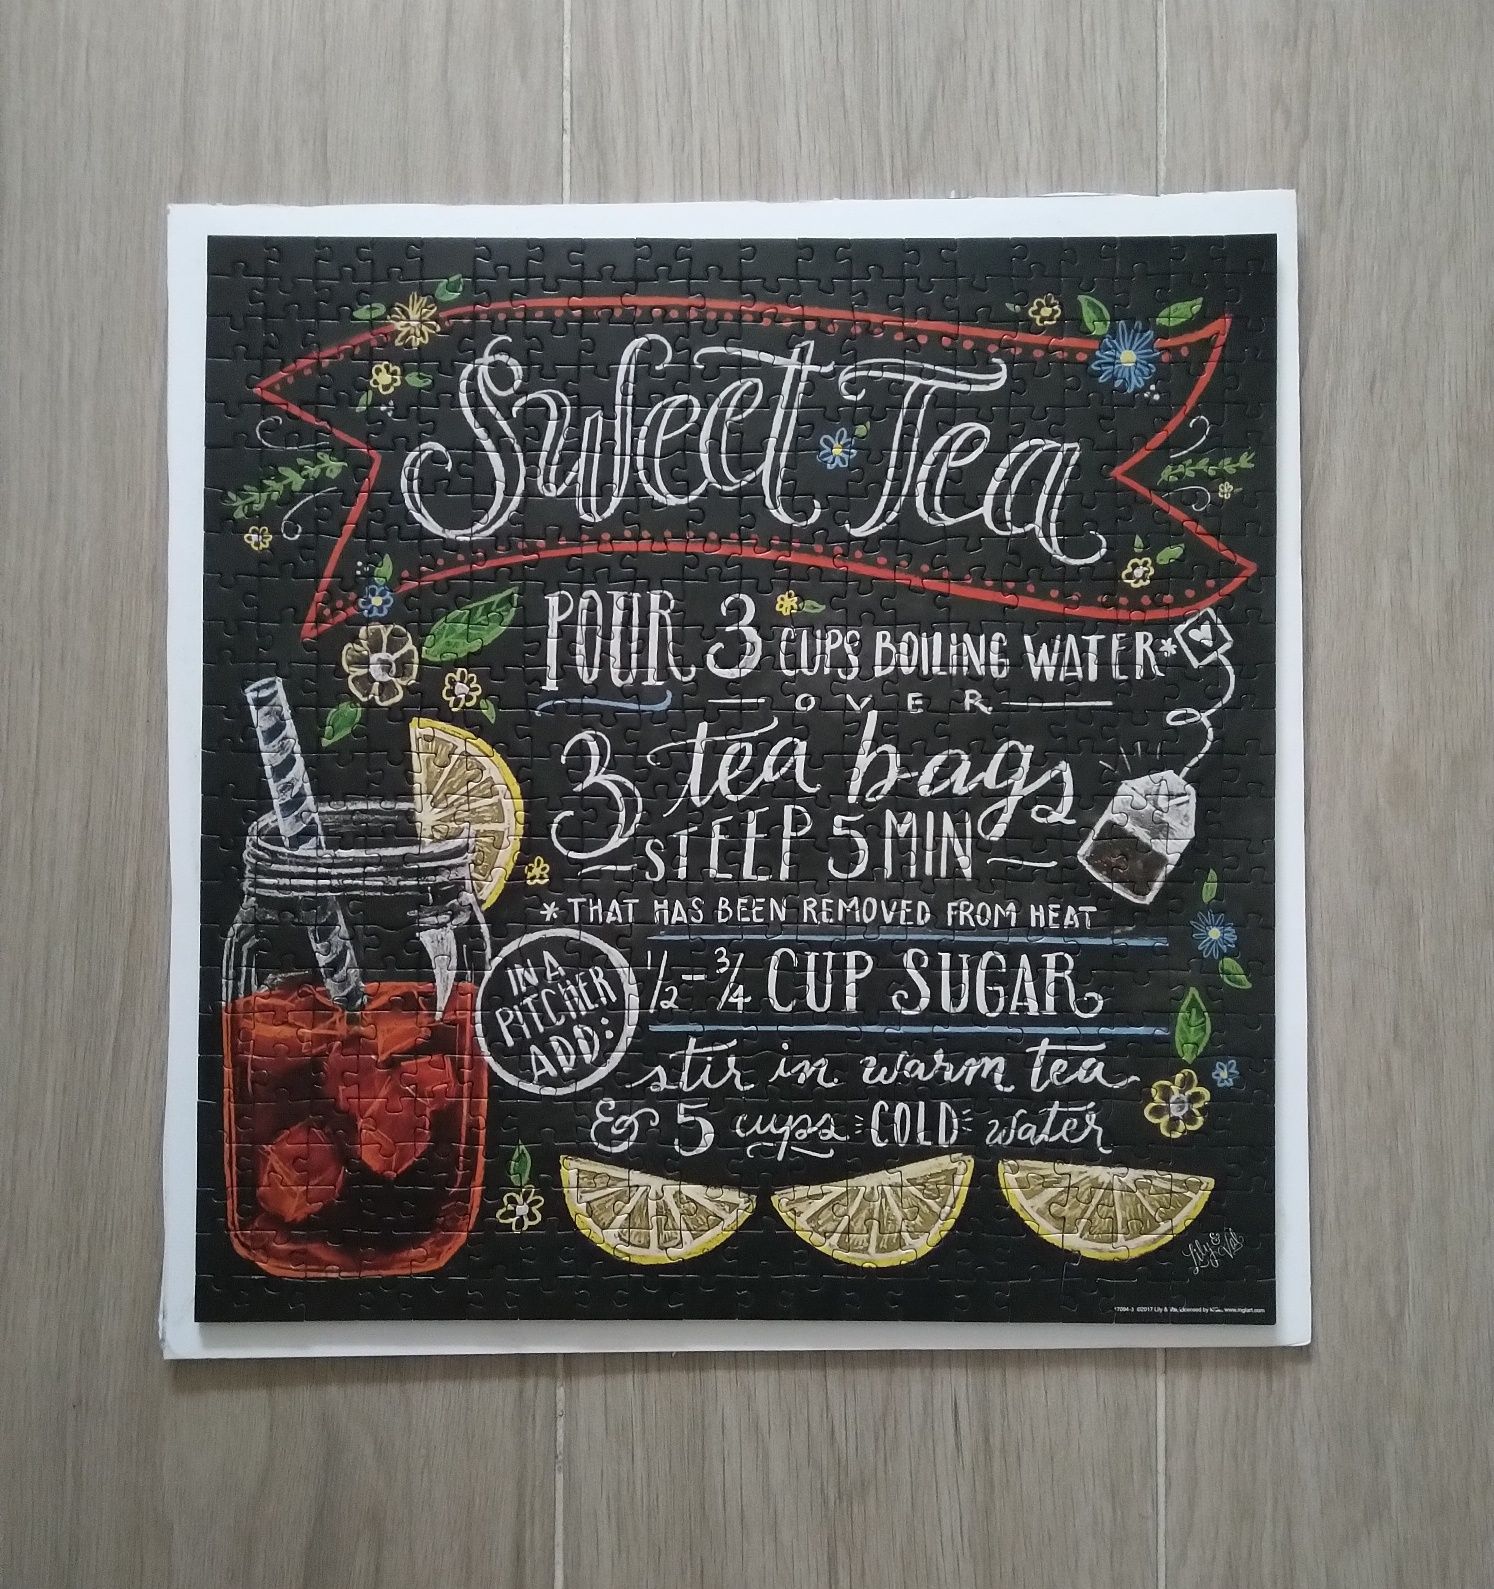 Sweet Tea
POUR 3 CUPS BOILING WATER*
OVER
3 tea bags
STEEP 5 MIN
*THAT HAS BEEN REMOVED FROM HEAT
IN A
PITCHER
ADD:
1/2-3/4 CUP SUGAR
stir in warm tea
& 5 cups COLD water
Lily &
Val
17094-3 ©2017 Lily & Val, Licensed by www.mglart.com